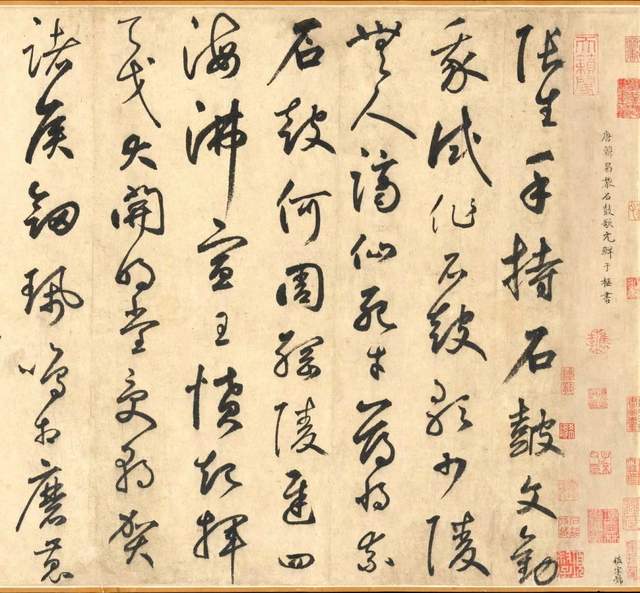 唐韓昌黎石鼓歌元鮮于樞書
張生手持石鼓文勸
我試作石鼓歌少陵
無人謫仙死才薄將奈
石鼓何周綱陵遲四
海沸宣王憤起揮
天戈大開明堂受朝賀
諸侯劍珮鳴相磨蒐